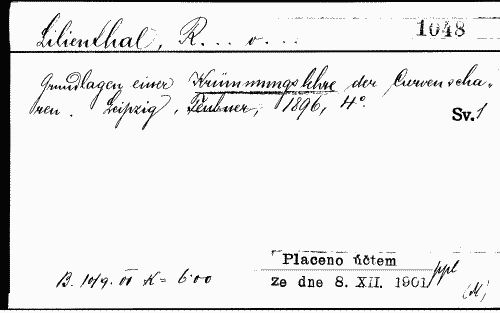 Lilienthal, R... v... 1048
Grundlagen einer Krümmungslehre der Curvenscha-
ren. Leipzig, Teubner, 1896, 4°. Sv. 1
Placeno účtem
B. 10/9. 00 K= 6·00 ze dne 8. XII. 1901 ppl
(M)